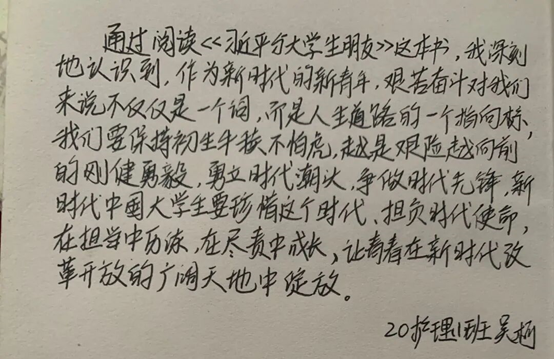 通过阅读<<习近平与大学生朋友>>这本书，我深刻
地认识到，作为新时代的新青年，艰苦奋斗对我们
来说不仅仅是一个词，而是人生道路的一个指向标，
我们要保持初生牛犊不怕虎，越是艰险越向前
的刚健勇毅，勇立时代潮头，争做时代先锋，新
时代中国大学生要珍惜这个时代、担负时代使命，
在担当中历练，在尽责中成长，让青春在新时代改
革开放的广阔天地中绽放。
20护理1班 吴柯